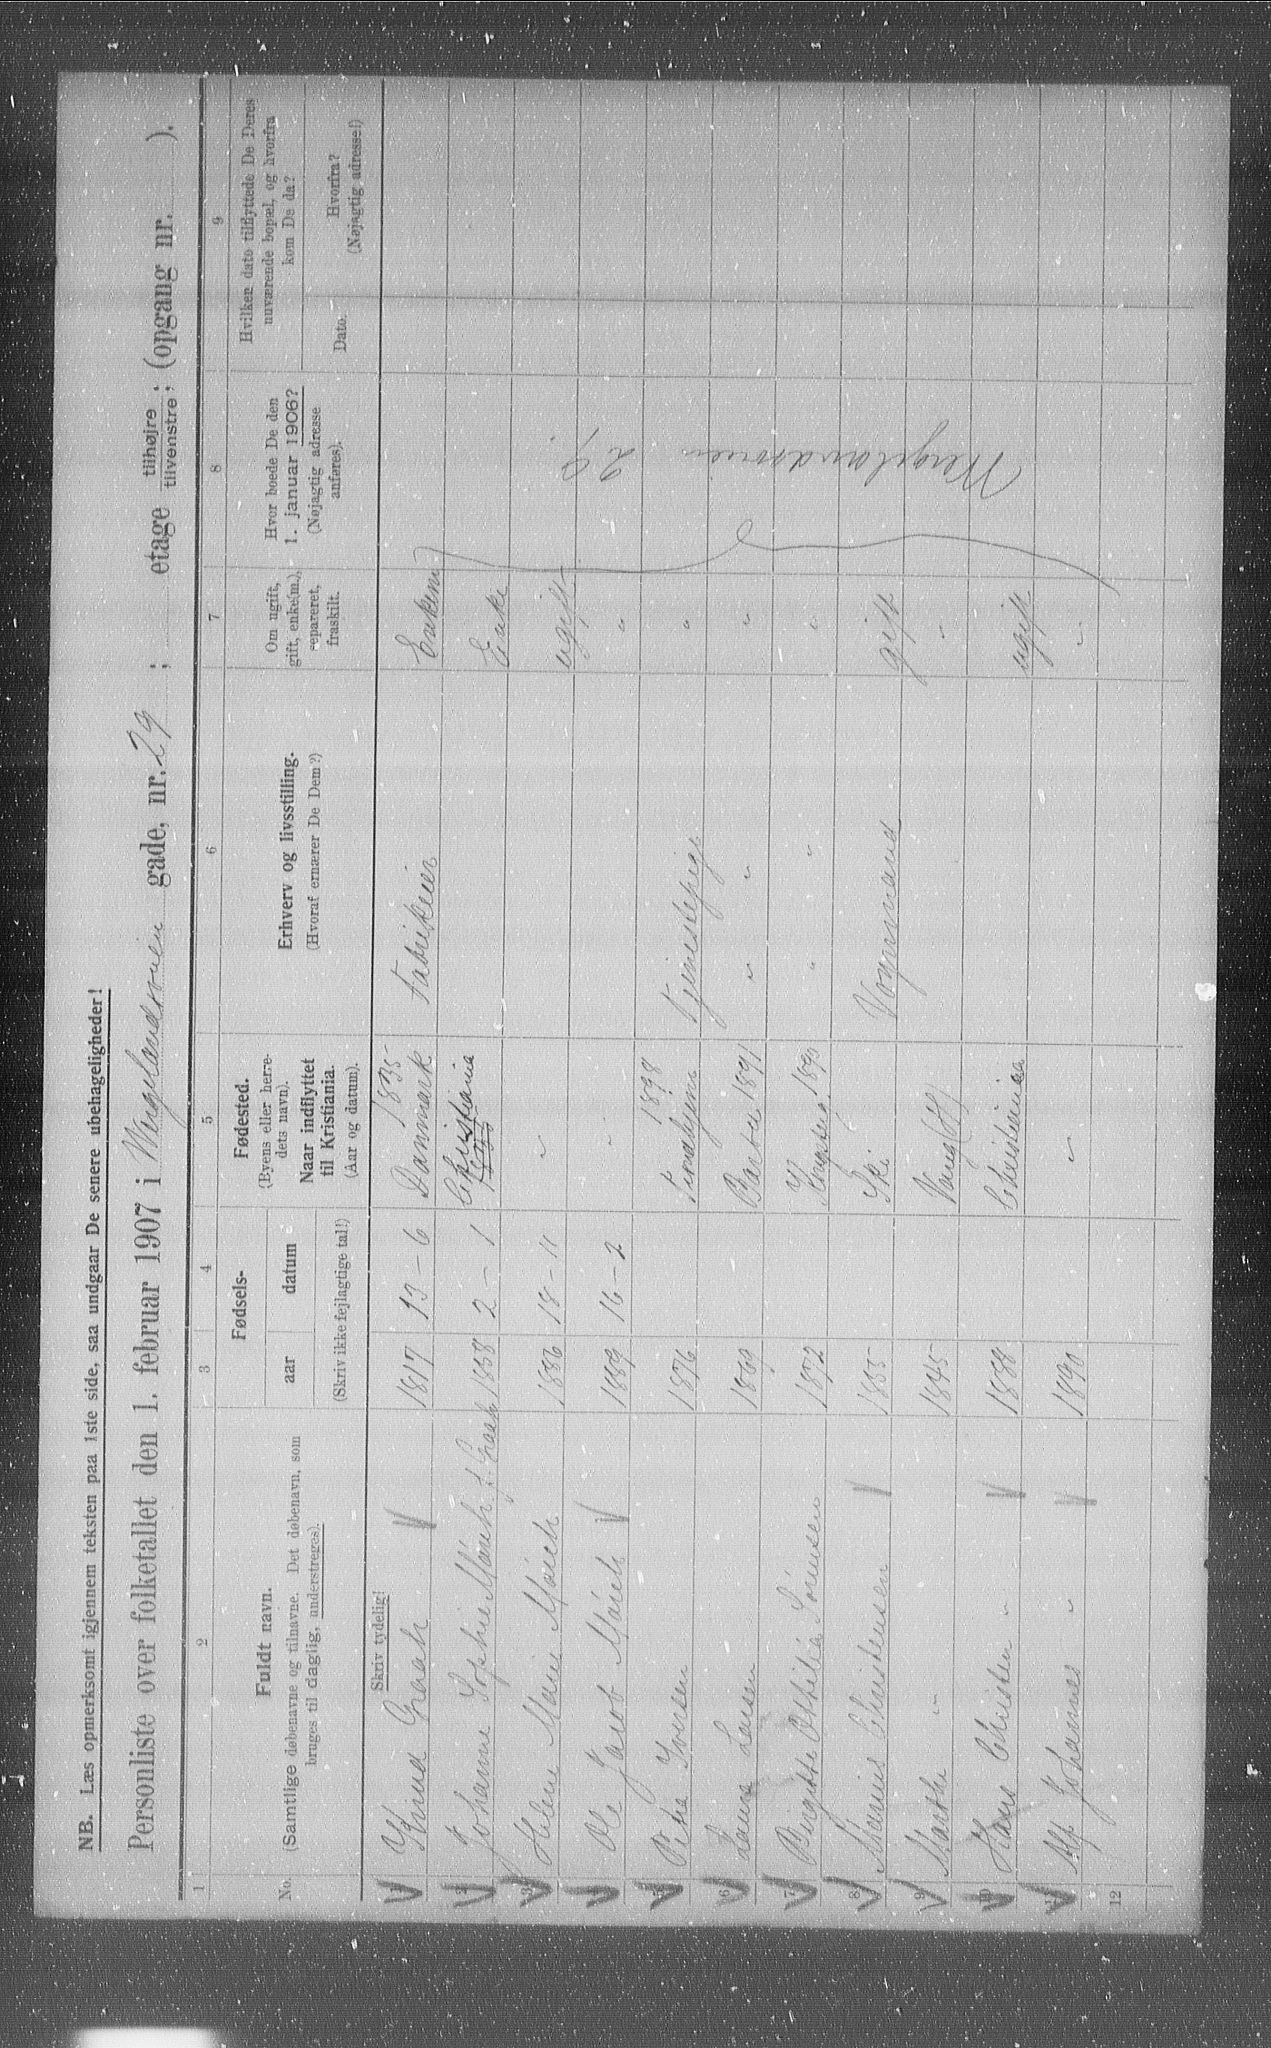 NB. Læs opmerksomt igjennem teksten paa 1ste side, saa undgaar De senere ubehageligheder!
Personliste over folketallet den 1. februar 1907 i Wergelandsveien gade, nr. 29 ; etage tilhøjre tilvenstre; (opgang nr. ).
1 2 3 4 5 6 7 8 9
No.
Fuldt navn.
(Samtlige døbenavne og tilnavne. Det døbenavn, som
bruges til daglig, understreges).
Fødsels-
aar datum
(Skriv ikke fejlagtige tal!)
Fødested.
(Byens eller herre-
dets navn).
Naar indflyttet
til Kristiania.
(Aar og datum).
Erhverv og livsstilling.
(Hvoraf ernærer De Dem?)
Om ugift,
gift, enke(m.),
separeret,
fraskilt.
Hvor boede De den
1. januar 1906?
(Nøjagtig adresse
anføres).
Hvilken dato tilflyttede De Deres
nuværende bopæl, og hvorfra
kom De da?
Dato.
Hvorfra?
(Nøjagtig adresse!)
Skriv tydelig!
1 Graah 1817 13-6 1835 Danmark Fabrikeier Enkem
2 Johanne Sophie Münch f. Graah 1858 2-1 Christiania Enke
3 Helene Marie Münch 1886 18-11 " ugift
4 Ole Jacob Münch 1889 16-2 " "
5 Petra Iversen 1876 1898 Tjenestepige "
6 Laura Larsen 1869 1891 " " "
7 Birgitte Othilia 1872 " " "
8 Marius Christensen 1855 Ski Vognmand gift
9 Marthe " 1845 Vang (H) "
10 Hans Christian " 1888 Christiania ugift
11 Alf Johannes " 1890 " "
12
Wergelandsveien
29